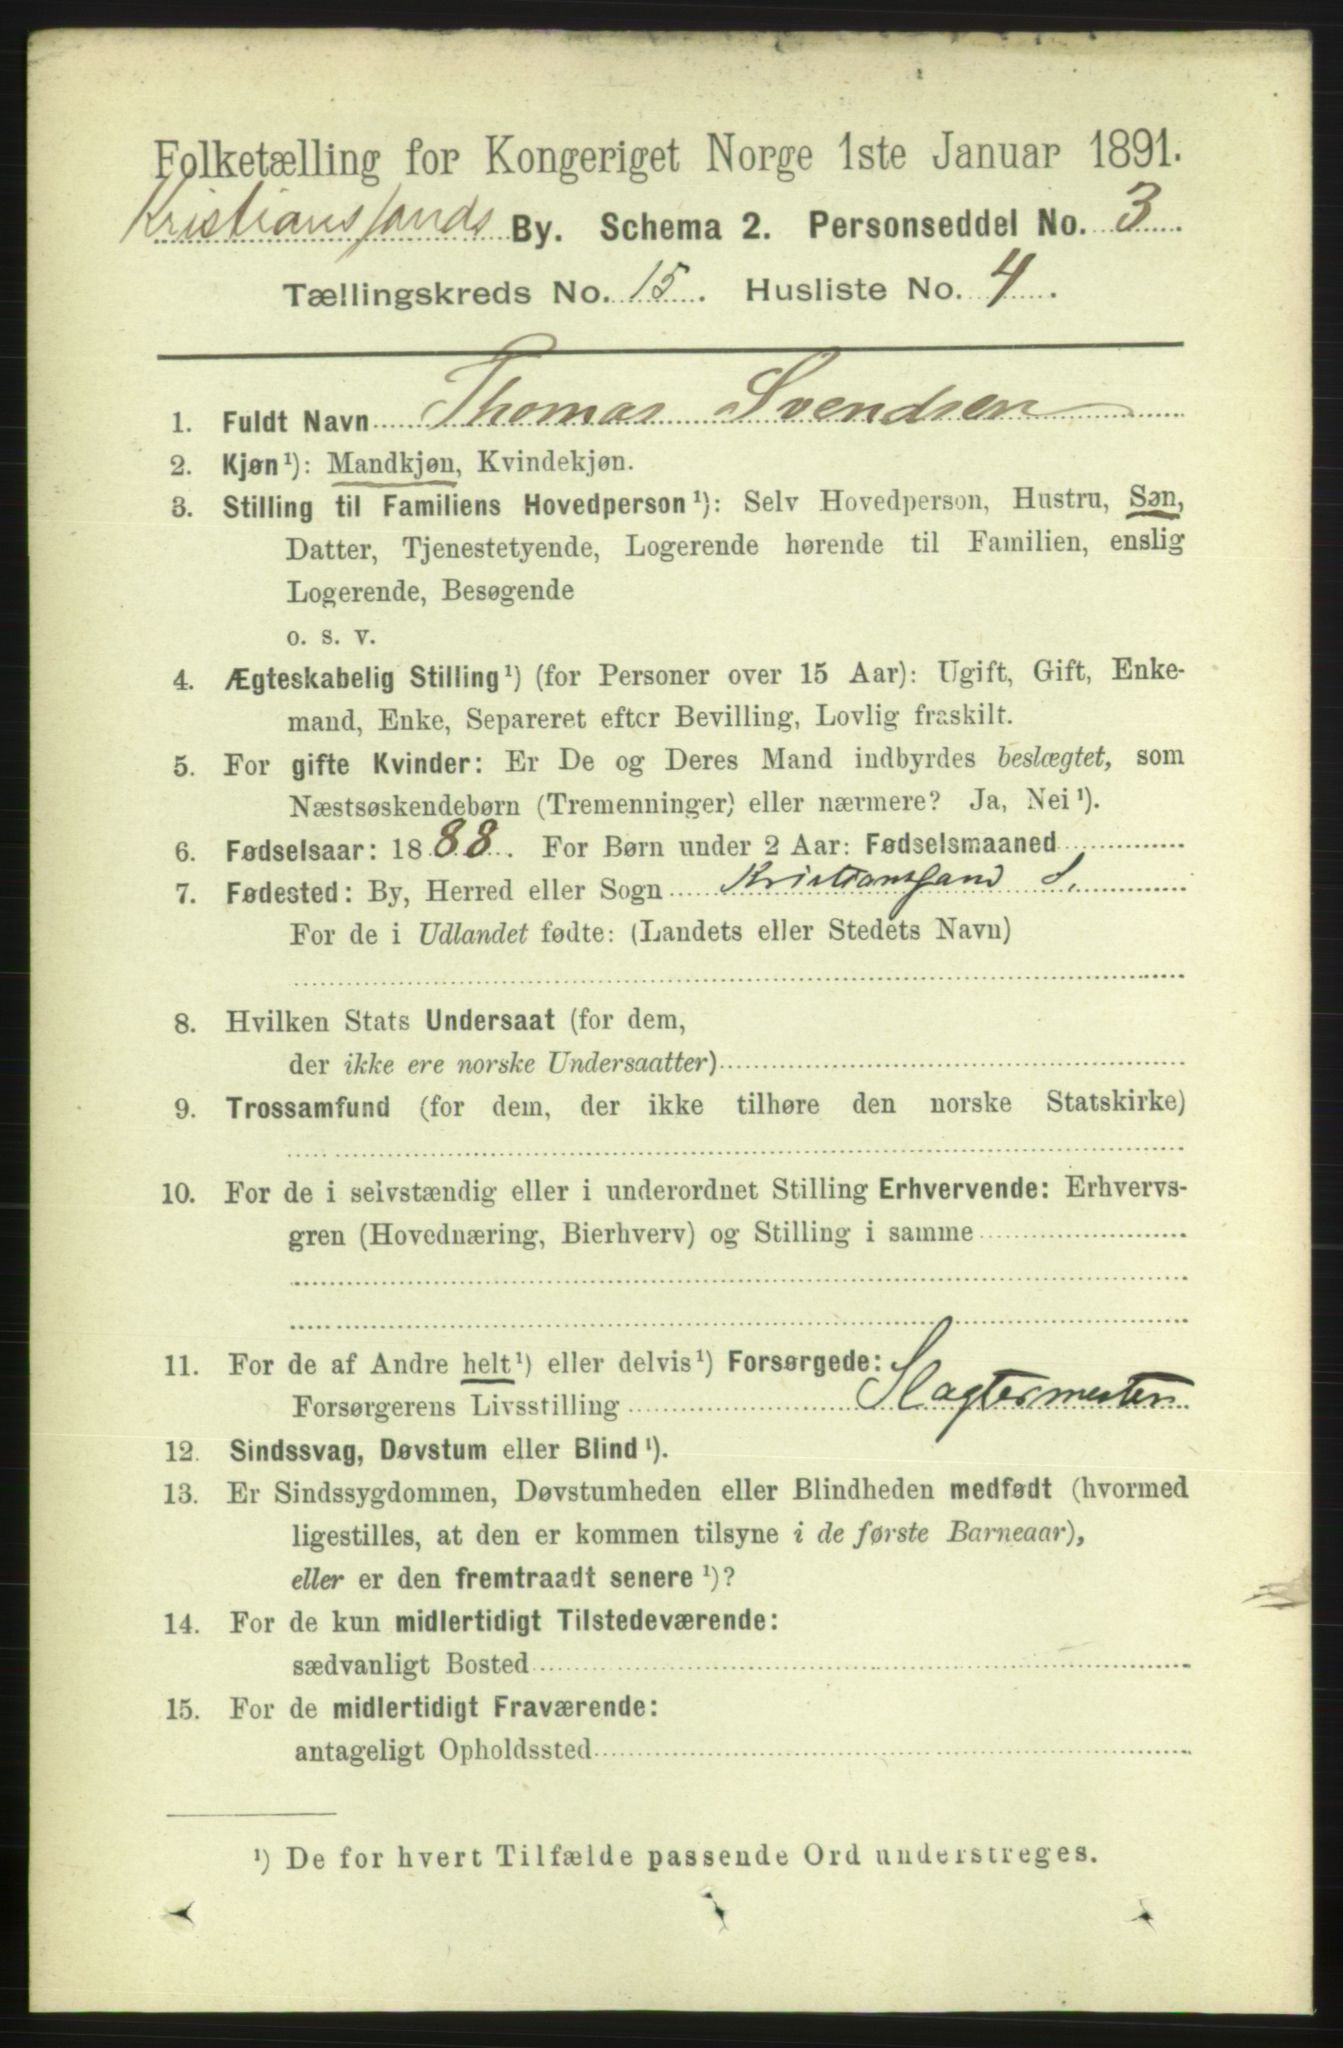 Folketælling for Kongeriget Norge 1ste Januar 1891.
Kristianssands By. Schema 2. Personseddel No. 3
Tællingskreds No. 15. Husliste No. 4.
1. Fuldt Navn Thomas Svendsen
2. Kjøn¹): Mandkjøn, Kvindekjøn.
3. Stilling til Familiens Hovedperson¹): Selv Hovedperson, Hustru, Søn,
Datter, Tjenestetyende, Logerende hørende til Familien, enslig
Logerende, Besøgende
o. s. v.
4. Ægteskabelig Stilling¹) (for Personer over 15 Aar): Ugift, Gift, Enke-
mand, Enke, Separeret efter Bevilling, Lovlig fraskilt.
5. For gifte Kvinder: Er De og Deres Mand indbyrdes beslægtet, som
Næstsøskendebørn (Tremenninger) eller nærmere? Ja, Nei¹).
6. Fødselsaar: 1888. For Børn under 2 Aar: Fødselsmaaned
7. Fødested: By, Herred eller Sogn Kristianssand S.
For de i Udlandet fødte: (Landets eller Stedets Navn)
8. Hvilken Stats Undersaat (for dem,
der ikke ere norske Undersaatter)
9. Trossamfund (for dem, der ikke tilhøre den norske Statskirke)
10. For de i selvstændig eller i underordnet Stilling Erhvervende: Erhvervs-
gren (Hovednæring, Bierhverv) og Stilling i samme
11. For de af Andre helt¹) eller delvis¹) Forsørgede:
Forsørgerens Livsstilling Slagtermester
12. Sindssvag, Døvstum eller Blind¹).
13. Er Sindssygdommen, Døvstumheden eller Blindheden medfødt (hvormed
ligestilles, at den er kommen tilsyne i de første Barneaar),
eller er den fremtraadt senere¹)?
14. For de kun midlertidigt Tilstedeværende:
sædvanligt Bosted
15. For de midlertidigt Fraværende:
antageligt Opholdssted
¹) De for hvert Tilfælde passende Ord understreges.